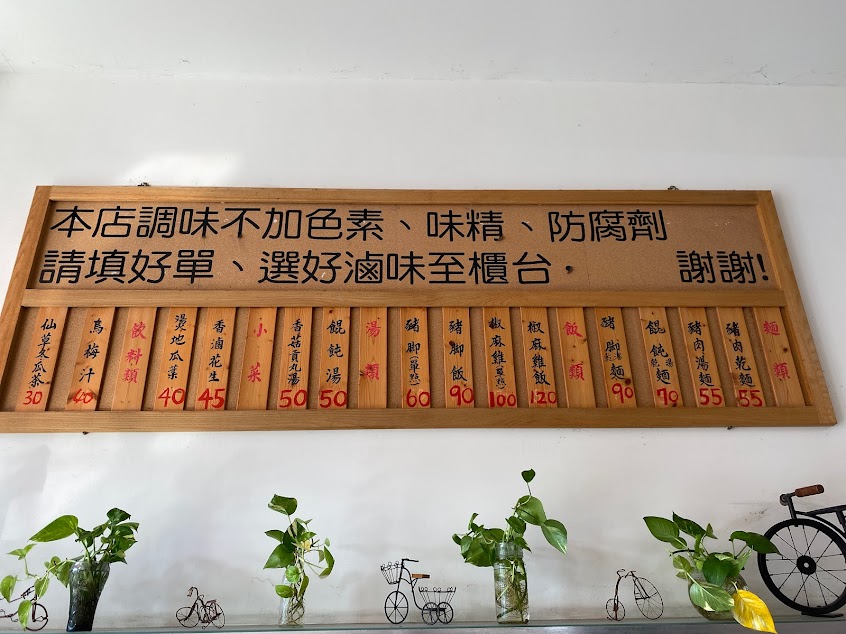 本店調味不加色素、味精、防腐劑
請填好單、選好滷味至櫃台. 謝謝!
麵類
豬肉乾麵 55
豬肉湯麵 55
餛飩乾湯麵 70
豬腳乾湯麵 90
飯類
椒麻雞飯 120
椒麻雞(單點) 100
豬腳飯 90
豬腳(單點) 60
湯類
餛飩湯 50
香菇貢丸湯 50
小菜
香滷花生 45
燙地瓜葉 40
飲料類
烏梅汁 40
仙草冬瓜茶 30